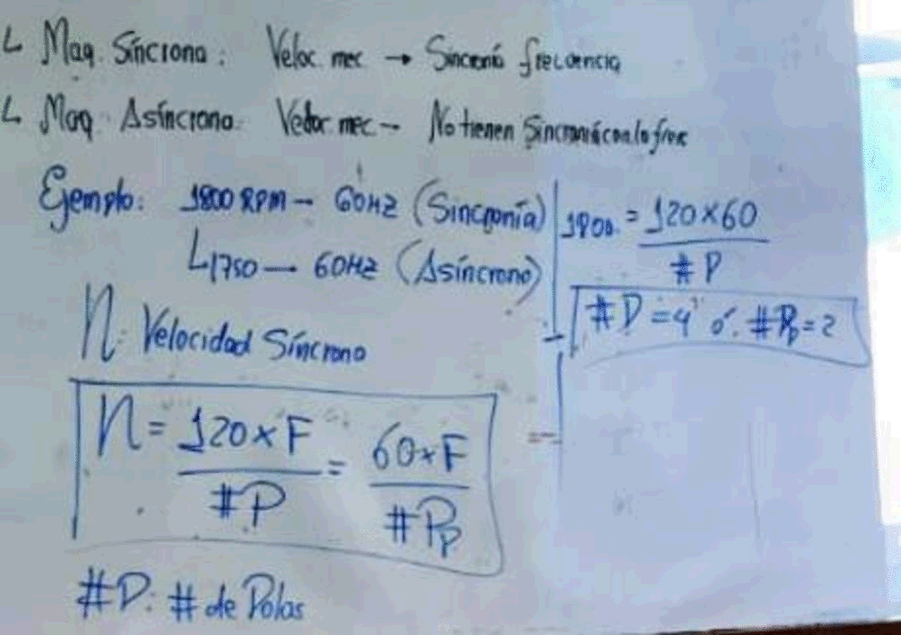 L Maq. Síncrona: Veloc. mec → Sincronía frecuencia
L Maq. Asíncrona: Veloc. mec – No tienen Sincronía con la frec
Ejemplo: 1800 RPM – 60HZ (Sincronía)
L 1750 – 60HZ (Asíncrono)
1800 = 120x60 / #P
#P = 4 ó #Pp = 2
N: Velocidad Síncrono
N = 120 x F / #P = 60 x F / #Pp
#P: # de Polos